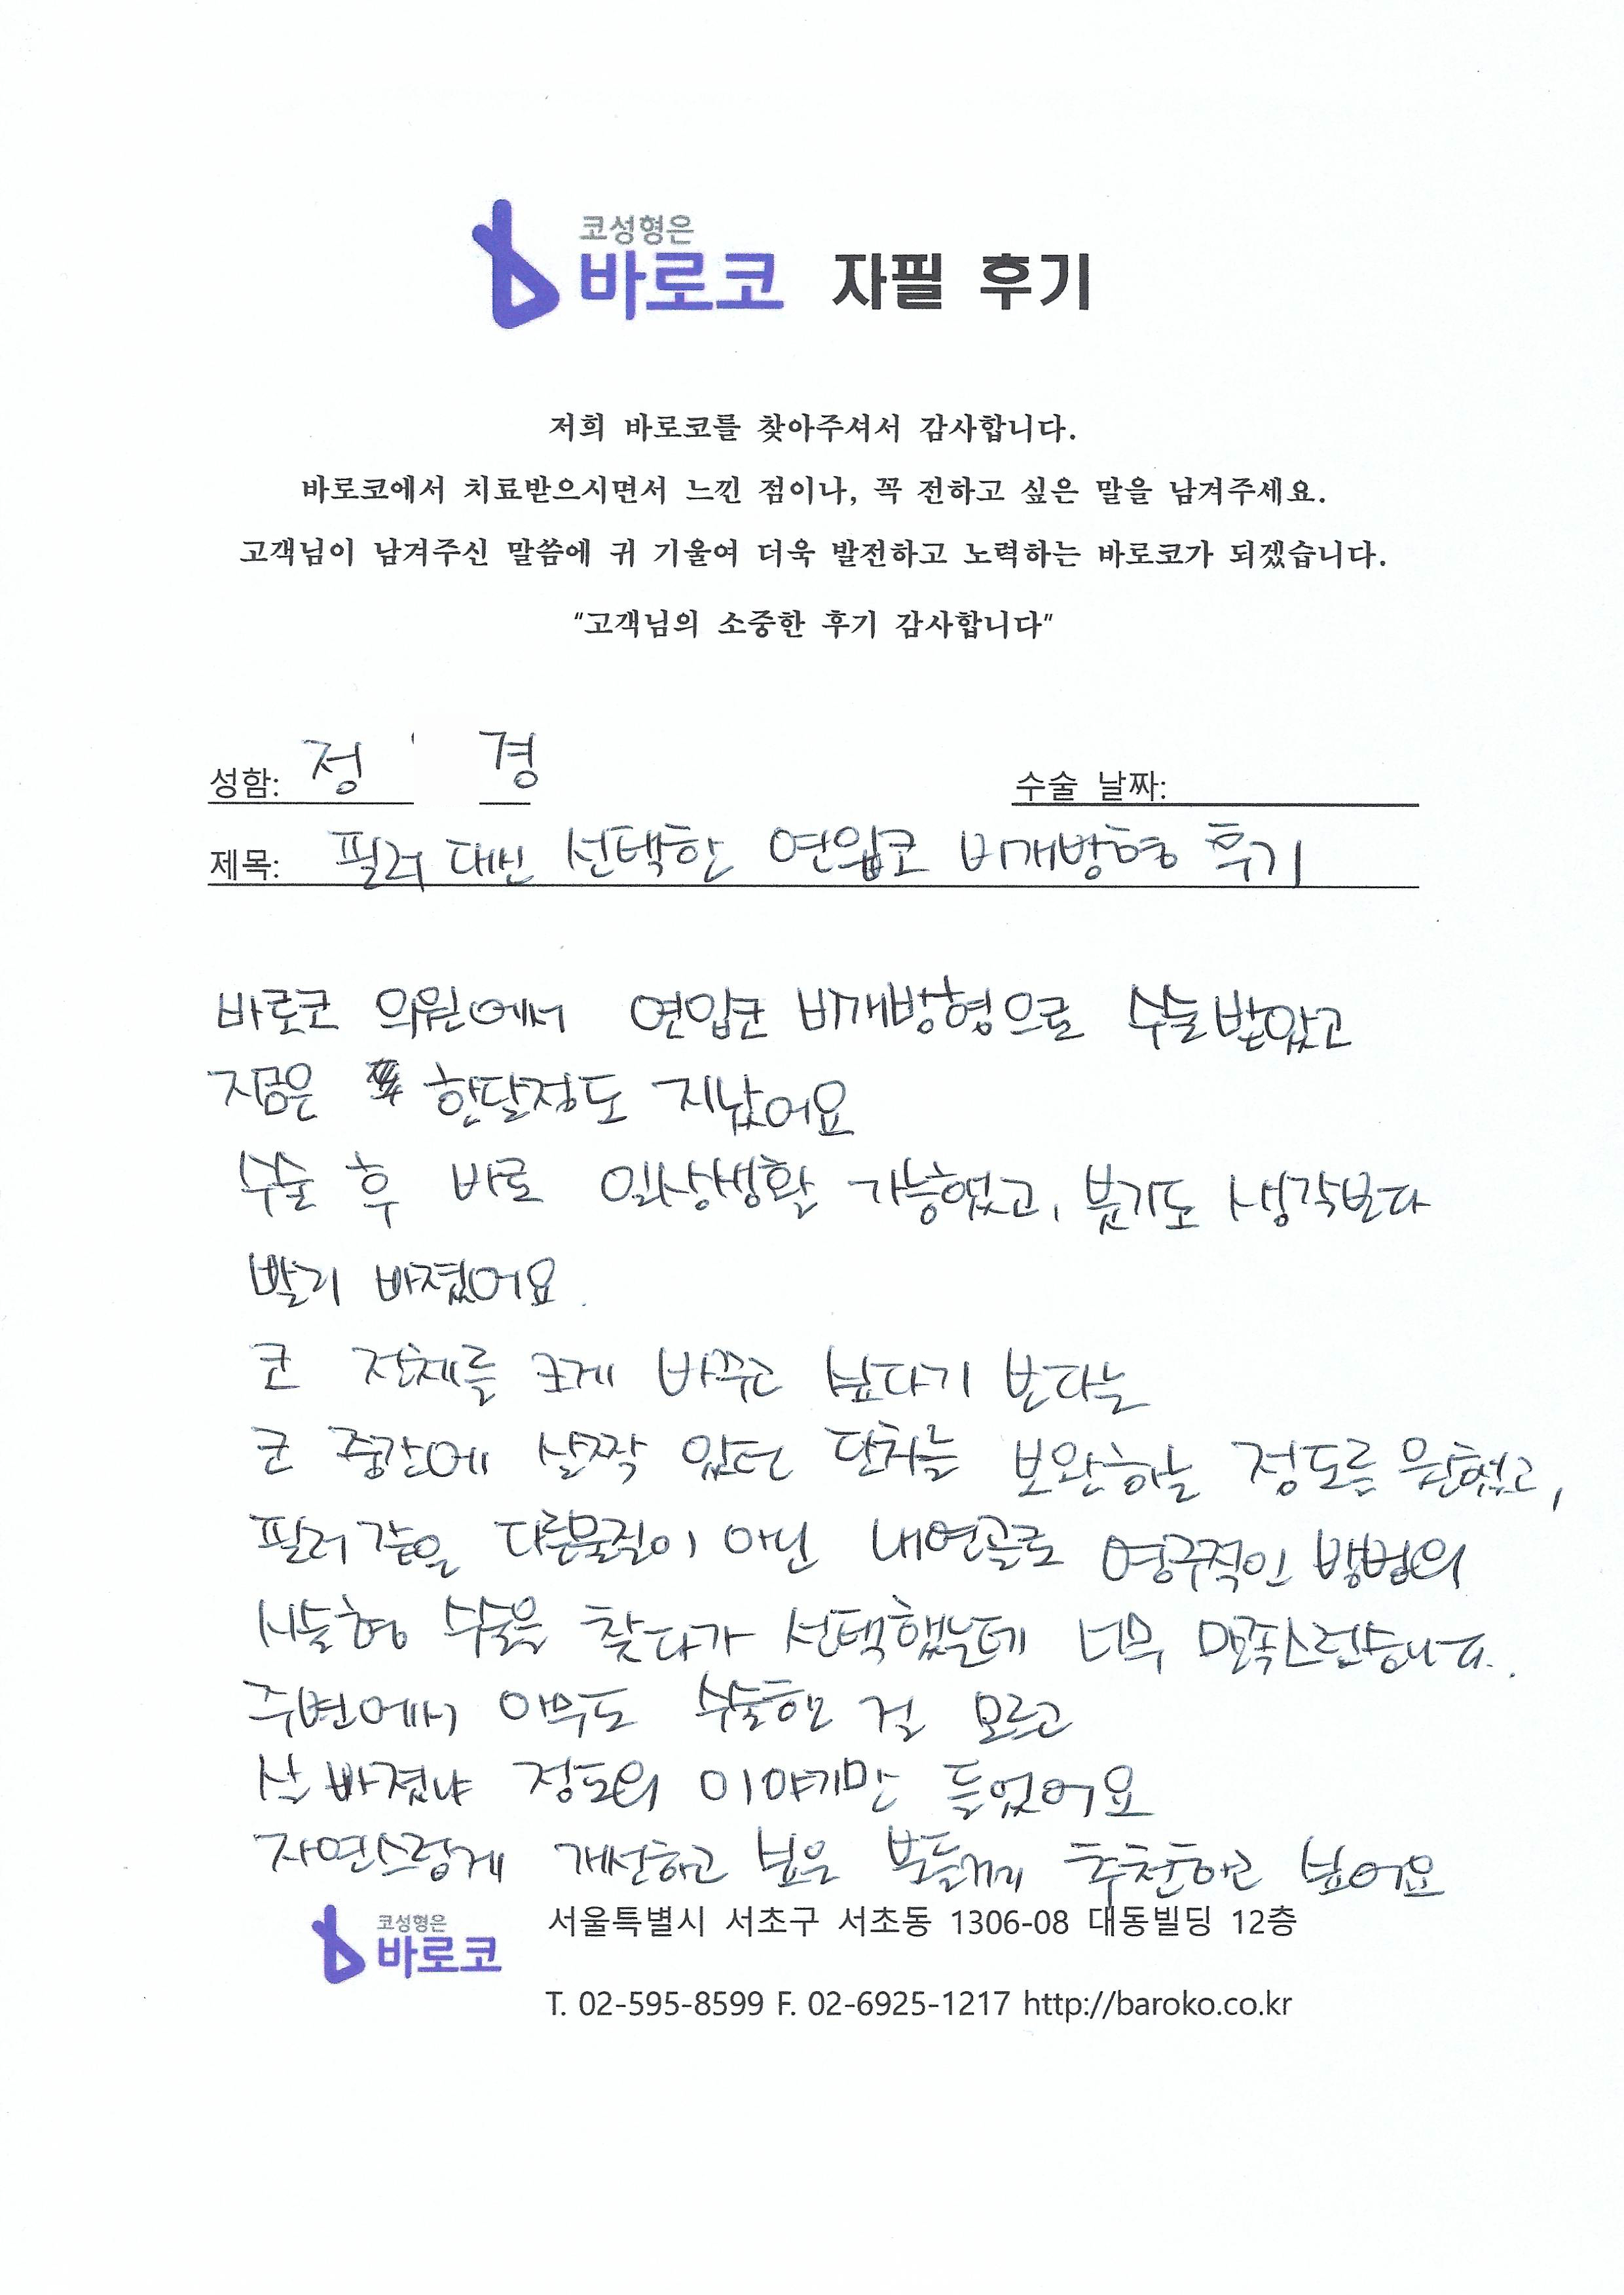 코성형은
바로코 자필 후기
저희 바로코를 찾아주셔서 감사합니다.
바로코에서 치료받으시면서 느낀 점이나, 꼭 전하고 싶은 말을 남겨주세요.
고객님이 남겨주신 말씀에 귀 기울여 더욱 발전하고 노력하는 바로코가 되겠습니다.
“고객님의 소중한 후기 감사합니다”
성함: 정 경 수술 날짜:
제목: 필러 대신 선택한 연입코 비개방형 후기
바로코 의원에서 연입코 비개방형으로 수술받았고
지금은 한달정도 지났어요
수술 후 바로 일상생활 가능했고, 붓기도 생각보다
빨리 빠졌어요.
코 전체를 크게 바꾸고 싶다기 보다는
코 중간에 살짝 있던 단차를 보완하는 정도를 원했고,
필러같은 다른물질이 아닌 내연골로 영구적인 방법의
시술형 수술을 찾다가 선택했는데 너무 만족스럽습니다.
주변에서 아무도 수술한 걸 모르고
살 빠졌냐 정도의 이야기만 들었어요
자연스럽게 개선하고 싶은 분들께 추천하고 싶어요
코성형은
바로코
서울특별시 서초구 서초동 1306-08 대동빌딩 12층
T. 02-595-8599 F. 02-6925-1217 http://baroko.co.kr